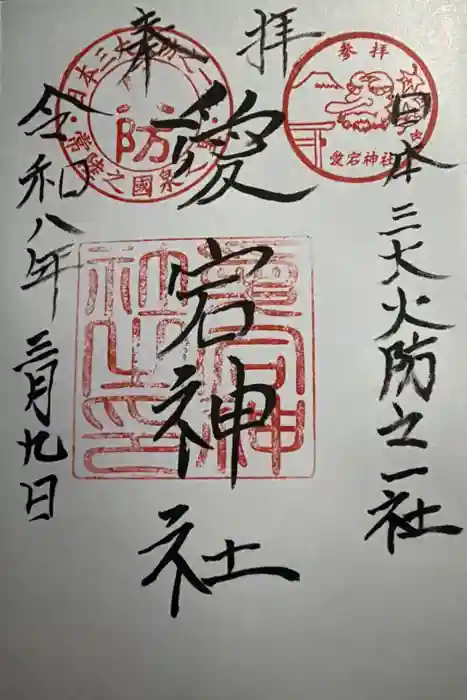 奉拝
日本三大火防之一社
愛宕神社
令和八年三月九日
参拝
愛宕神社
日本三大火防之一
防
愛宕神社之印